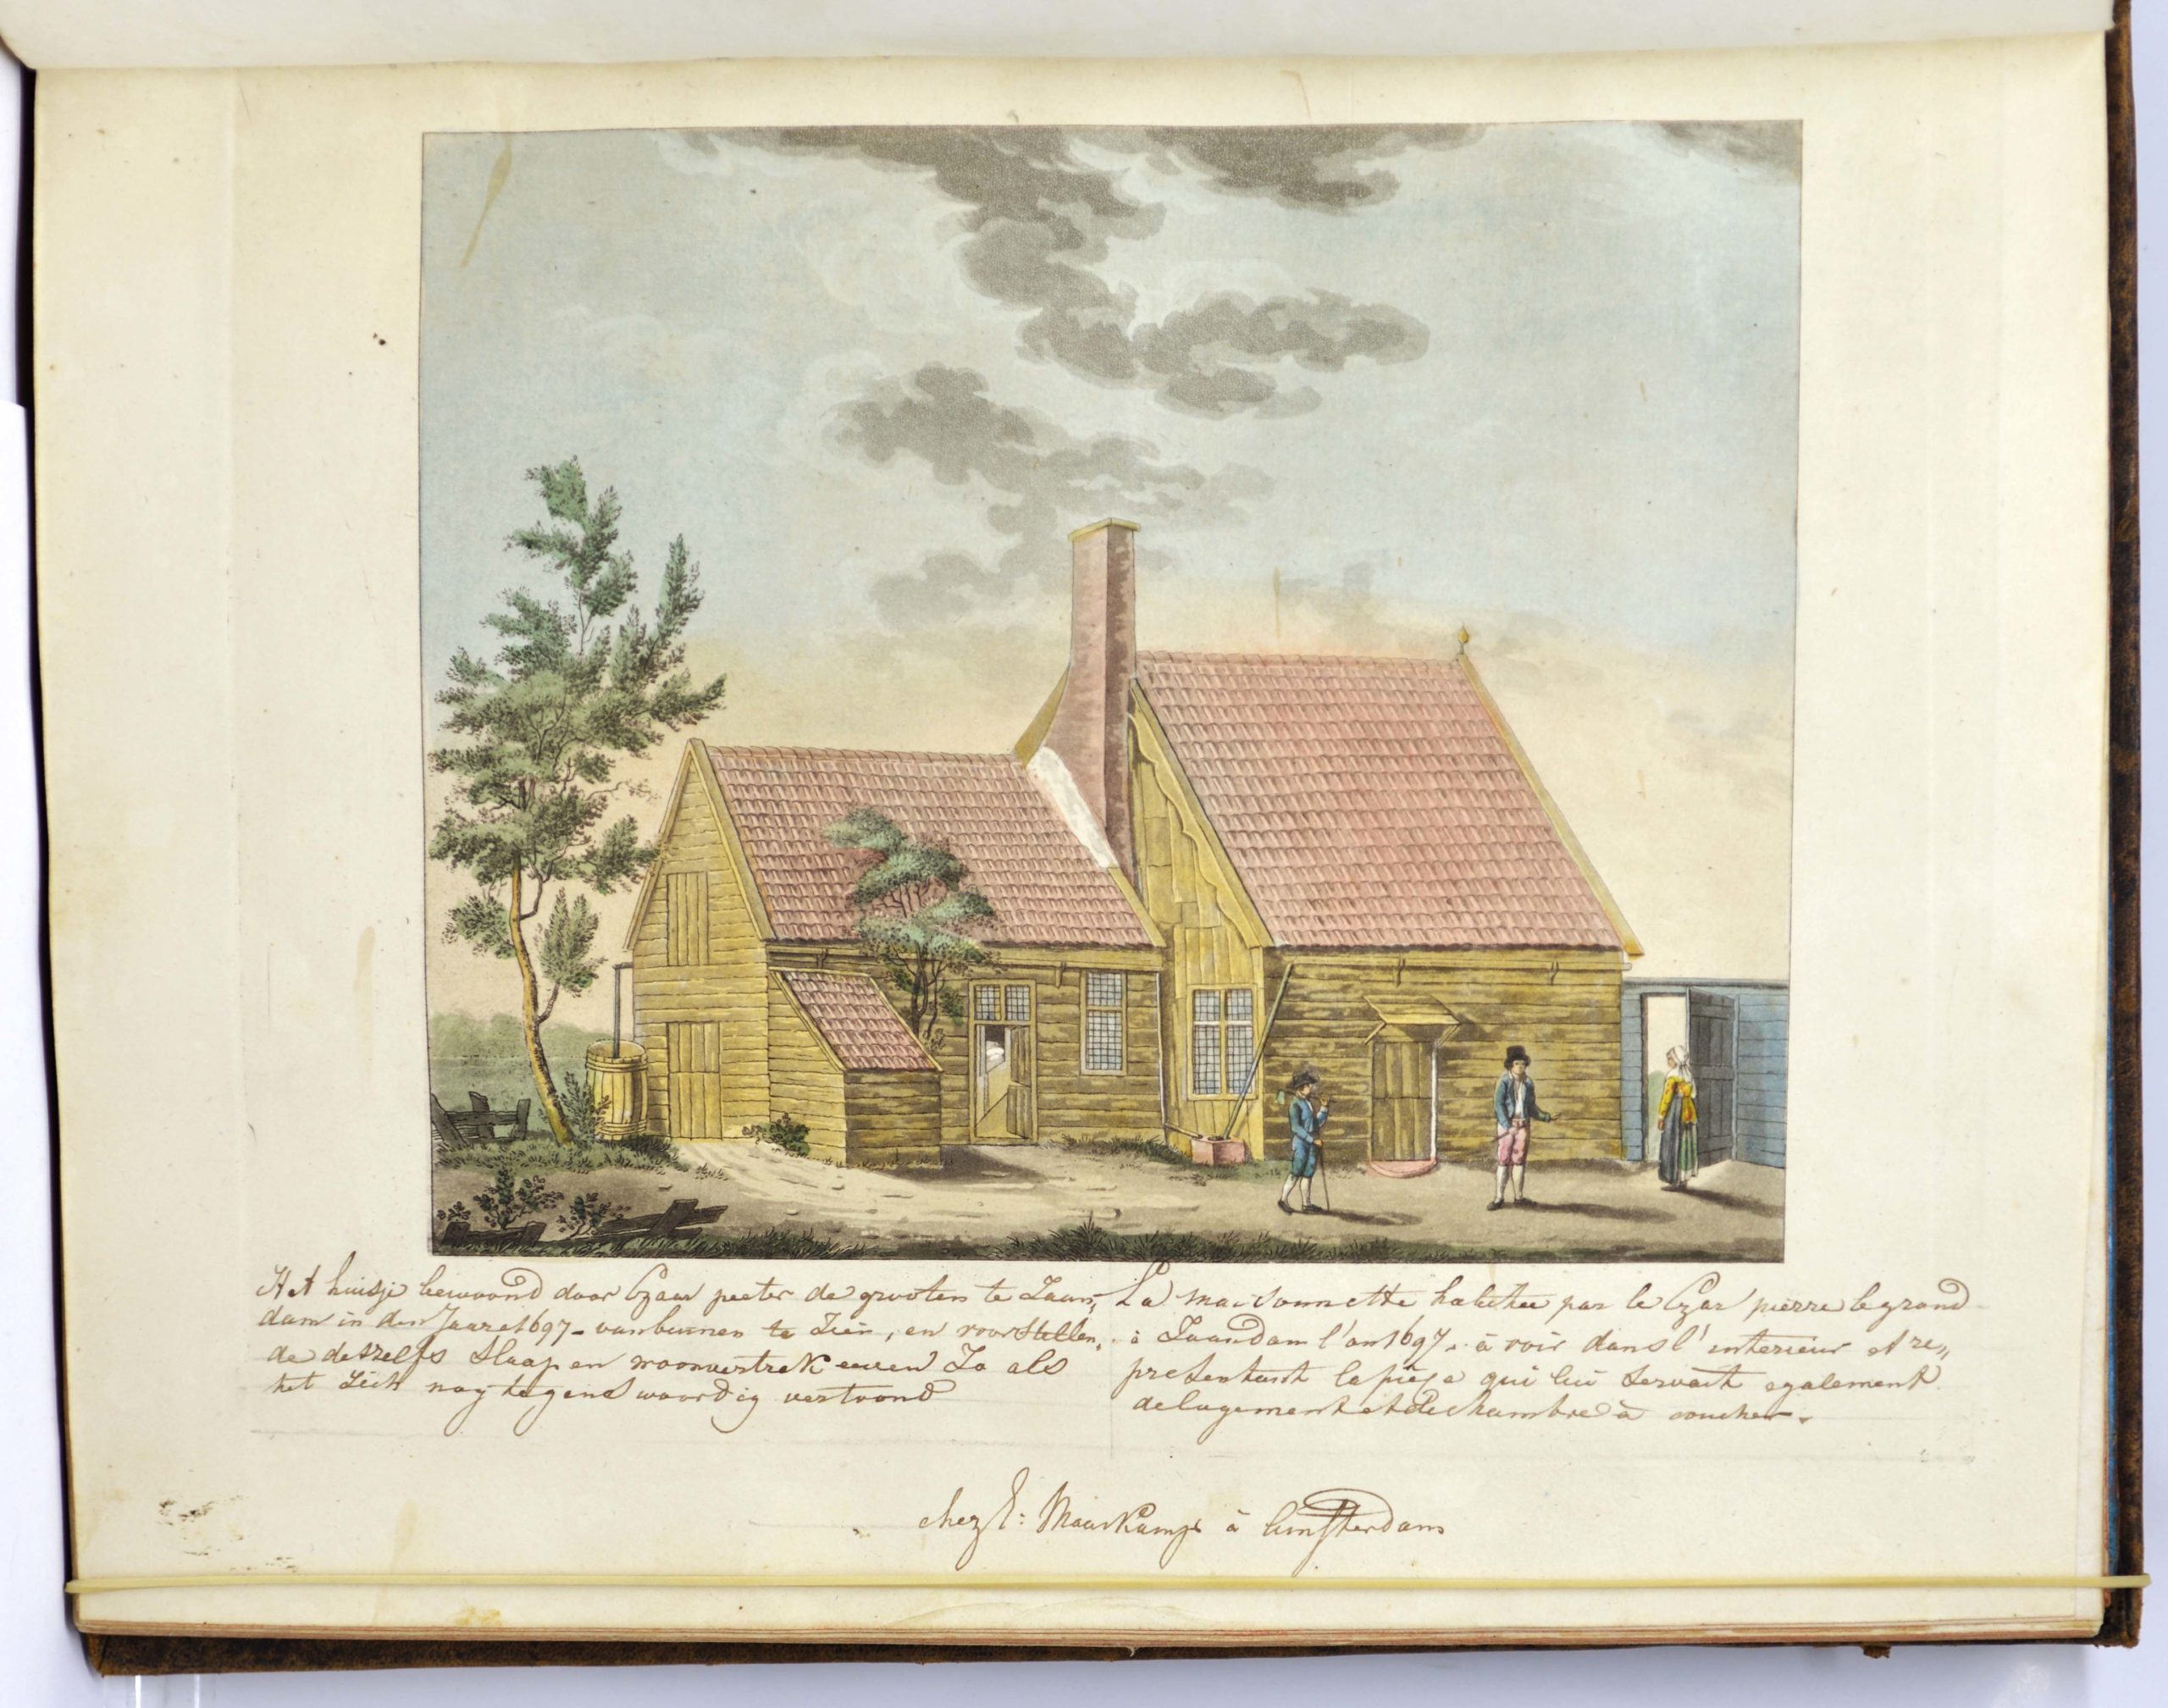 Het huisje bewoond door Czaar peeter de grooten te Zaan,,
dam in den Jaare 1697 - van binnen te Zien, en voorstellen,,
de deszelfs Slaap en woonvertrek eeven Zo als
het Zich nog tegenswoordig vertoond
La maisonnette habitee par le Czar pierre le grand
à Zaandam l'an 1697. à voir dans l'interieur et re,,
presentant la pieçe qui lui servait egalement
de lugement et de chambre à coucher.
chez E: Maaskamp à Amsterdam